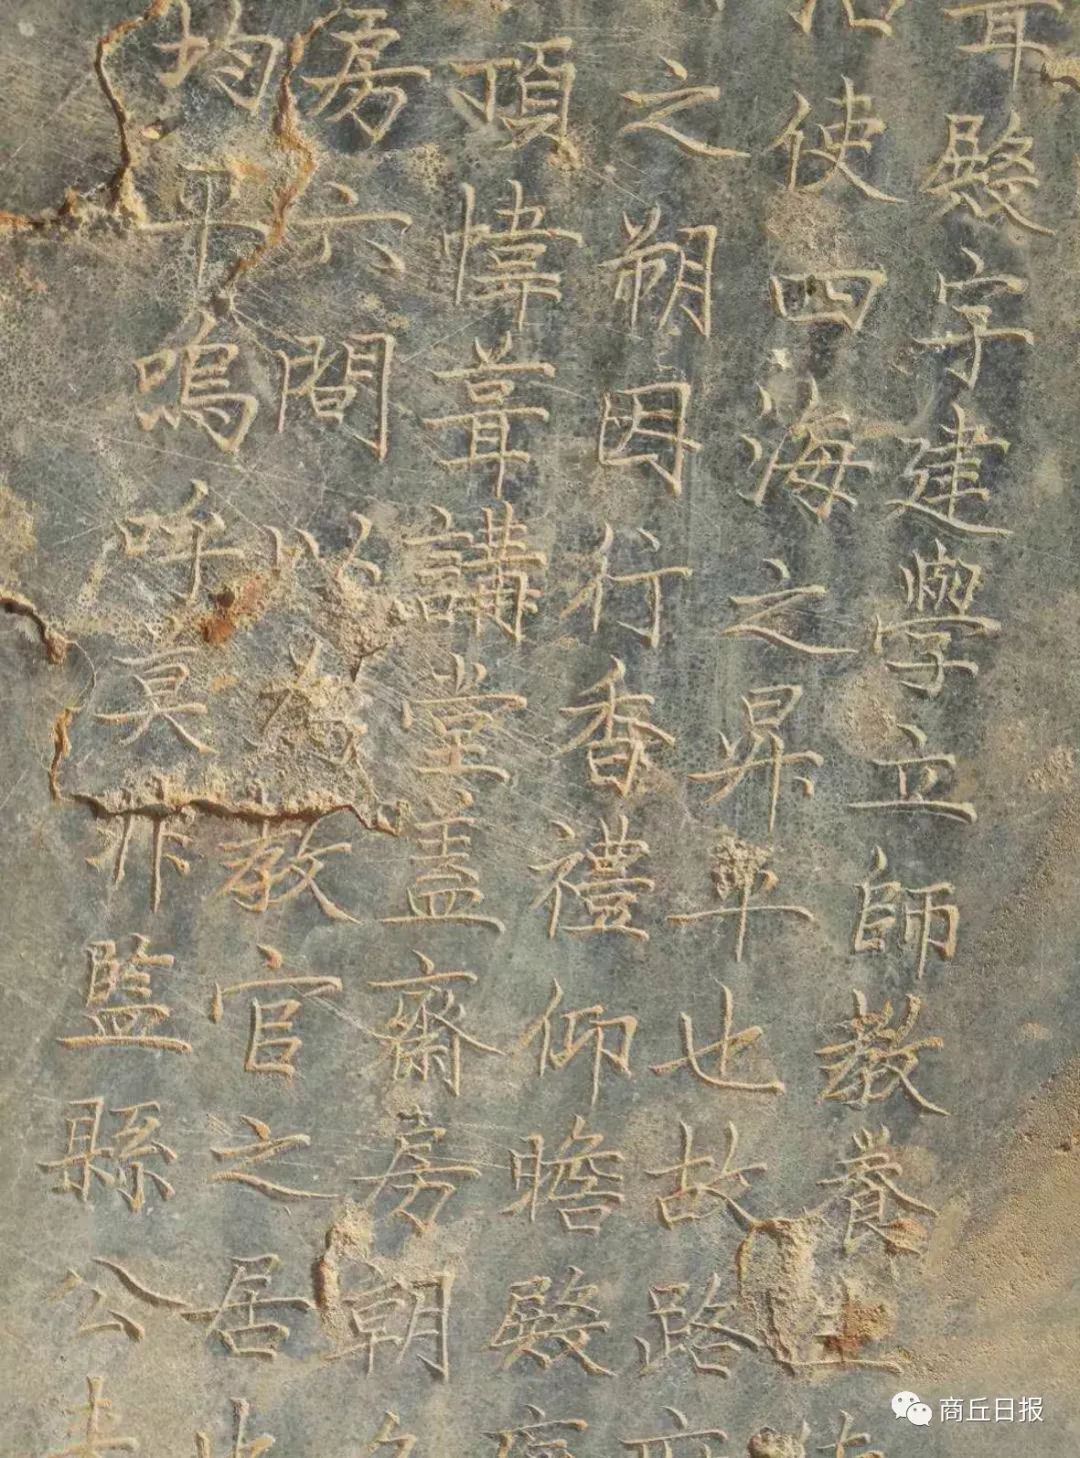 殿字建學立師教養
使四海之昇平也故路
之朔因行香禮仰瞻殿
頂幃葺講堂盖齋房朝
房六間以為教官之居
均平嗚呼莫非監縣公
商丘日报